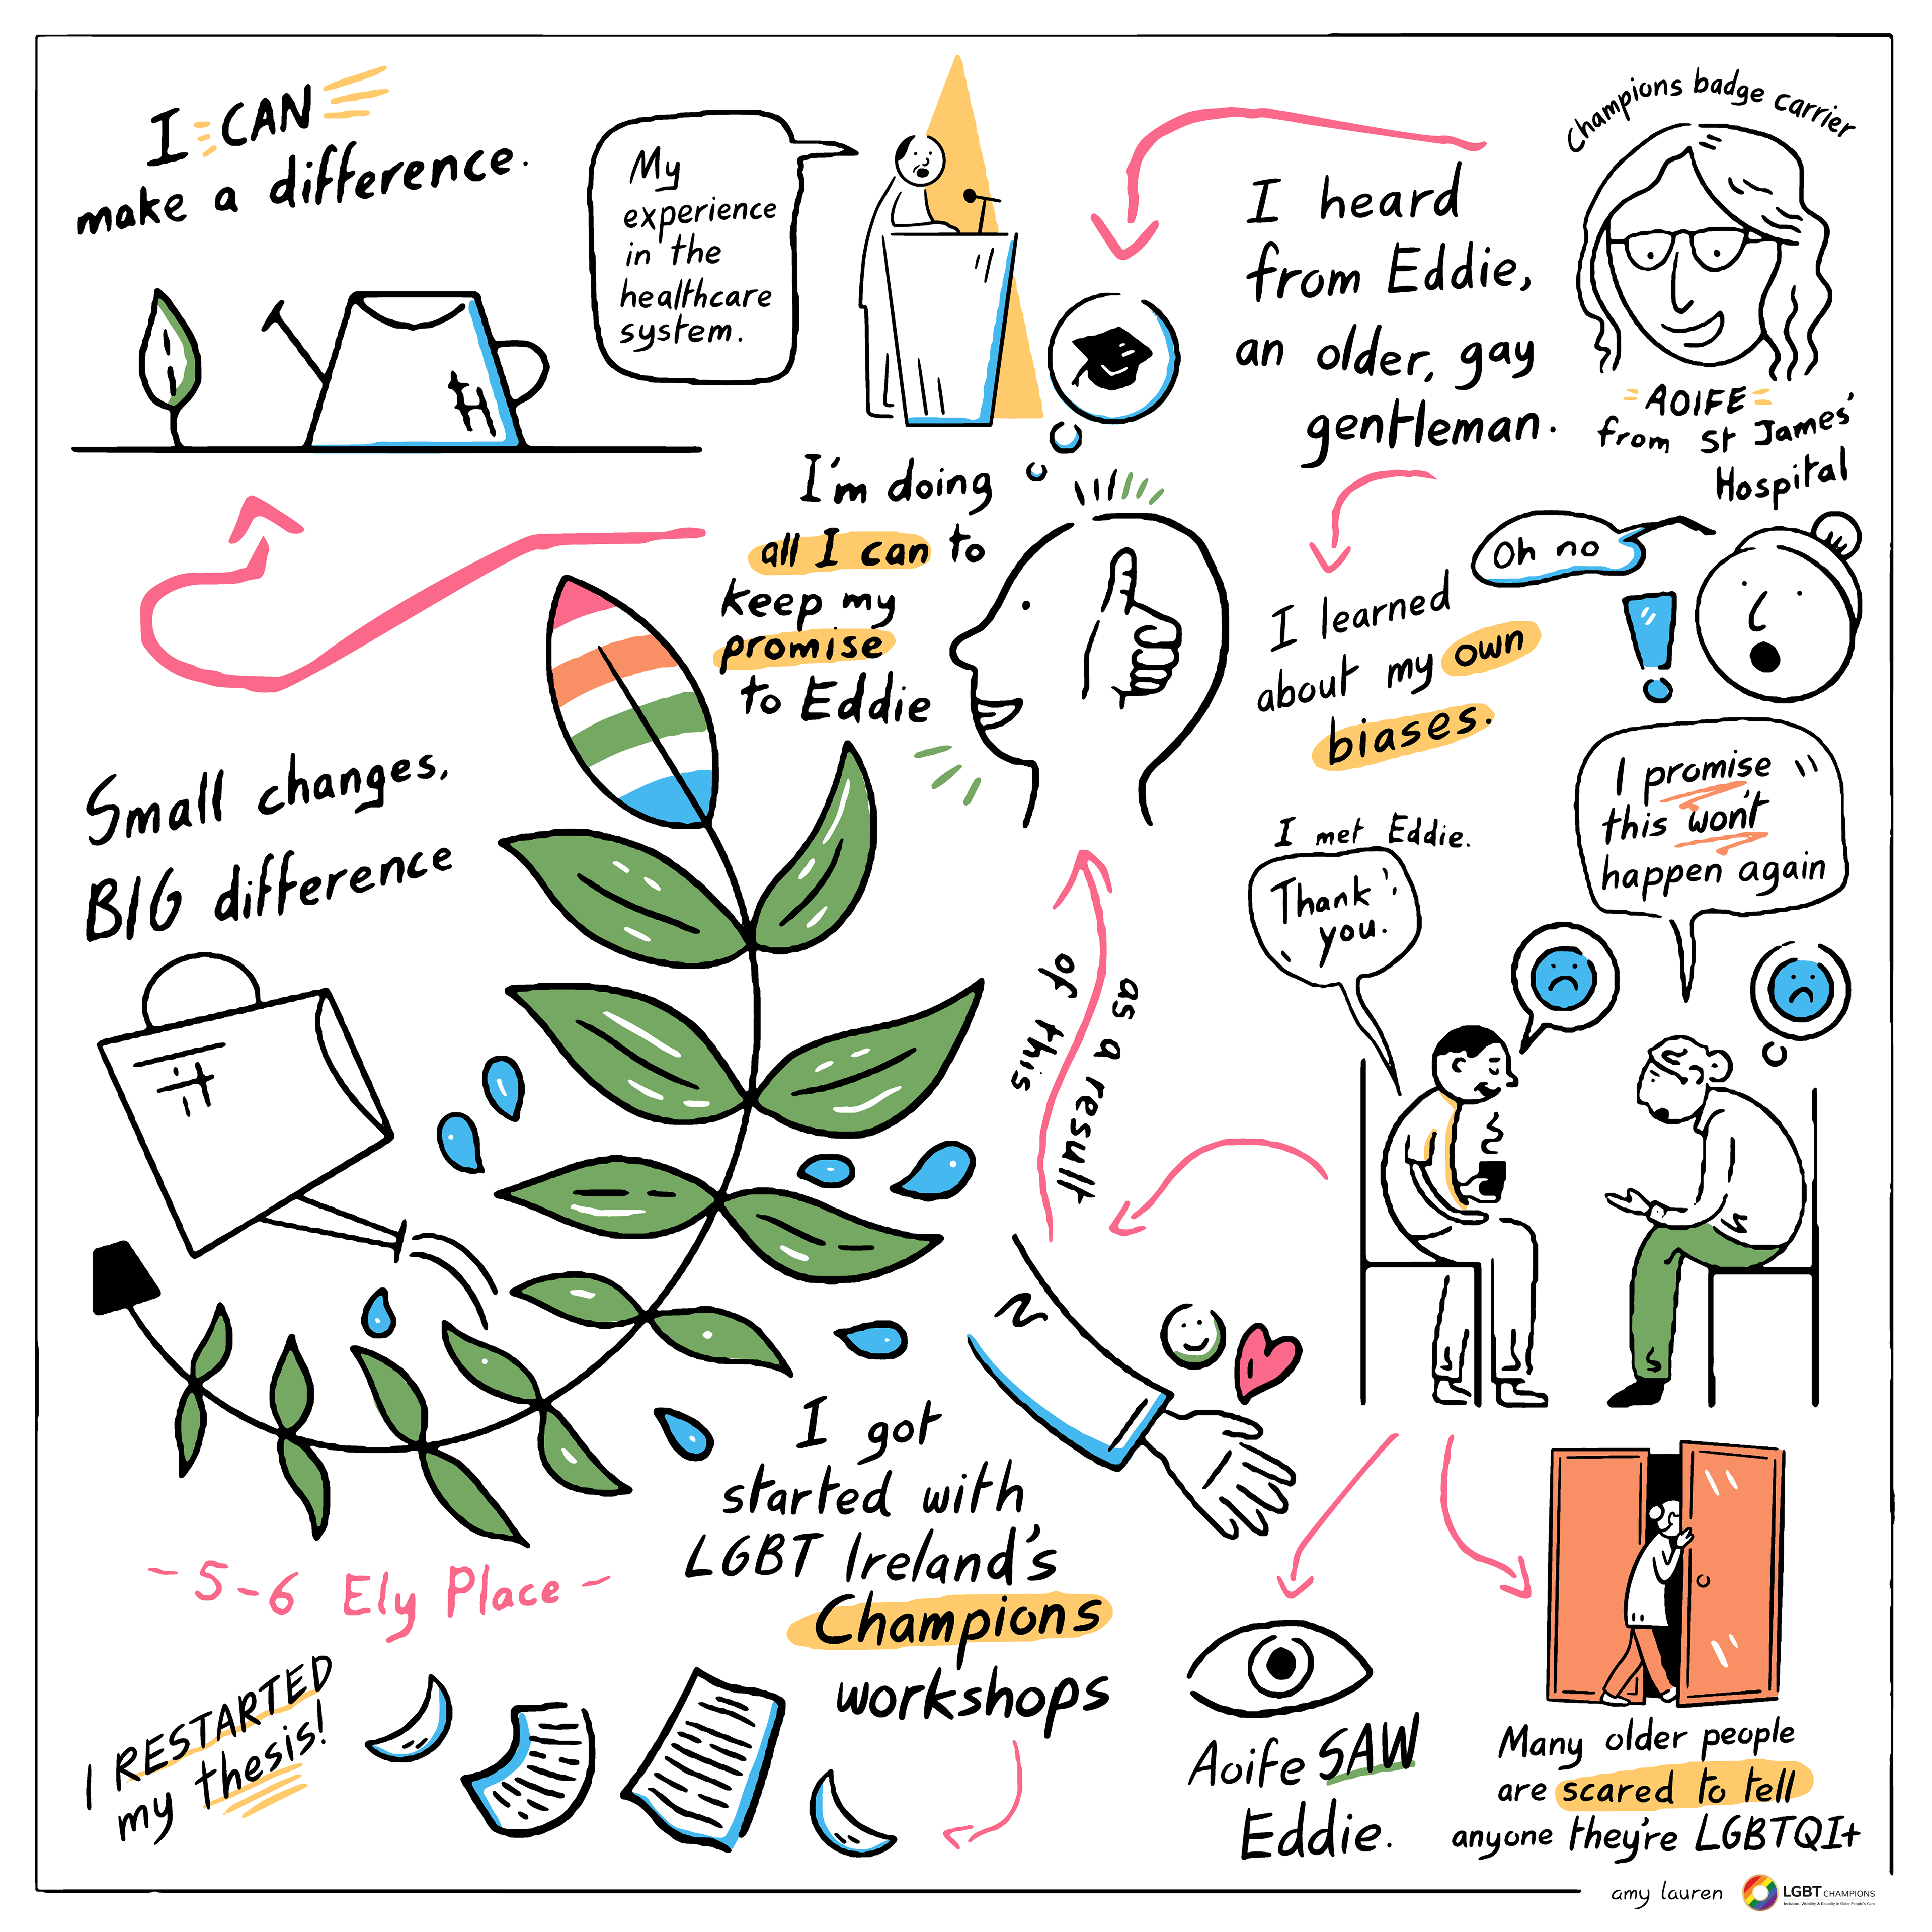 Champions badge carrier
AOIFE
from St James'
Hospital
I heard
from Eddie,
an older, gay
gentleman.
My
experience
in the
healthcare
system.
I learned
about my own
biases.
Oh no
I promise
this won't
happen again
I met Eddie.
Thank
you.
Aoife SAW
Eddie.
Many older people
are scared to tell
anyone they're LGBTQI+
as a result
of this
I'm doing
all I can to
keep my
promise
to Eddie
I got
started with
LGBT Ireland's
Champions
workshops
I RESTARTED
my thesis!
- 5-6 Ely Place -
Small changes,
BIG difference
I CAN
make a difference.
amy lauren
LGBT CHAMPIONS
Inclusion, Visibility & Equality in Older People's Care